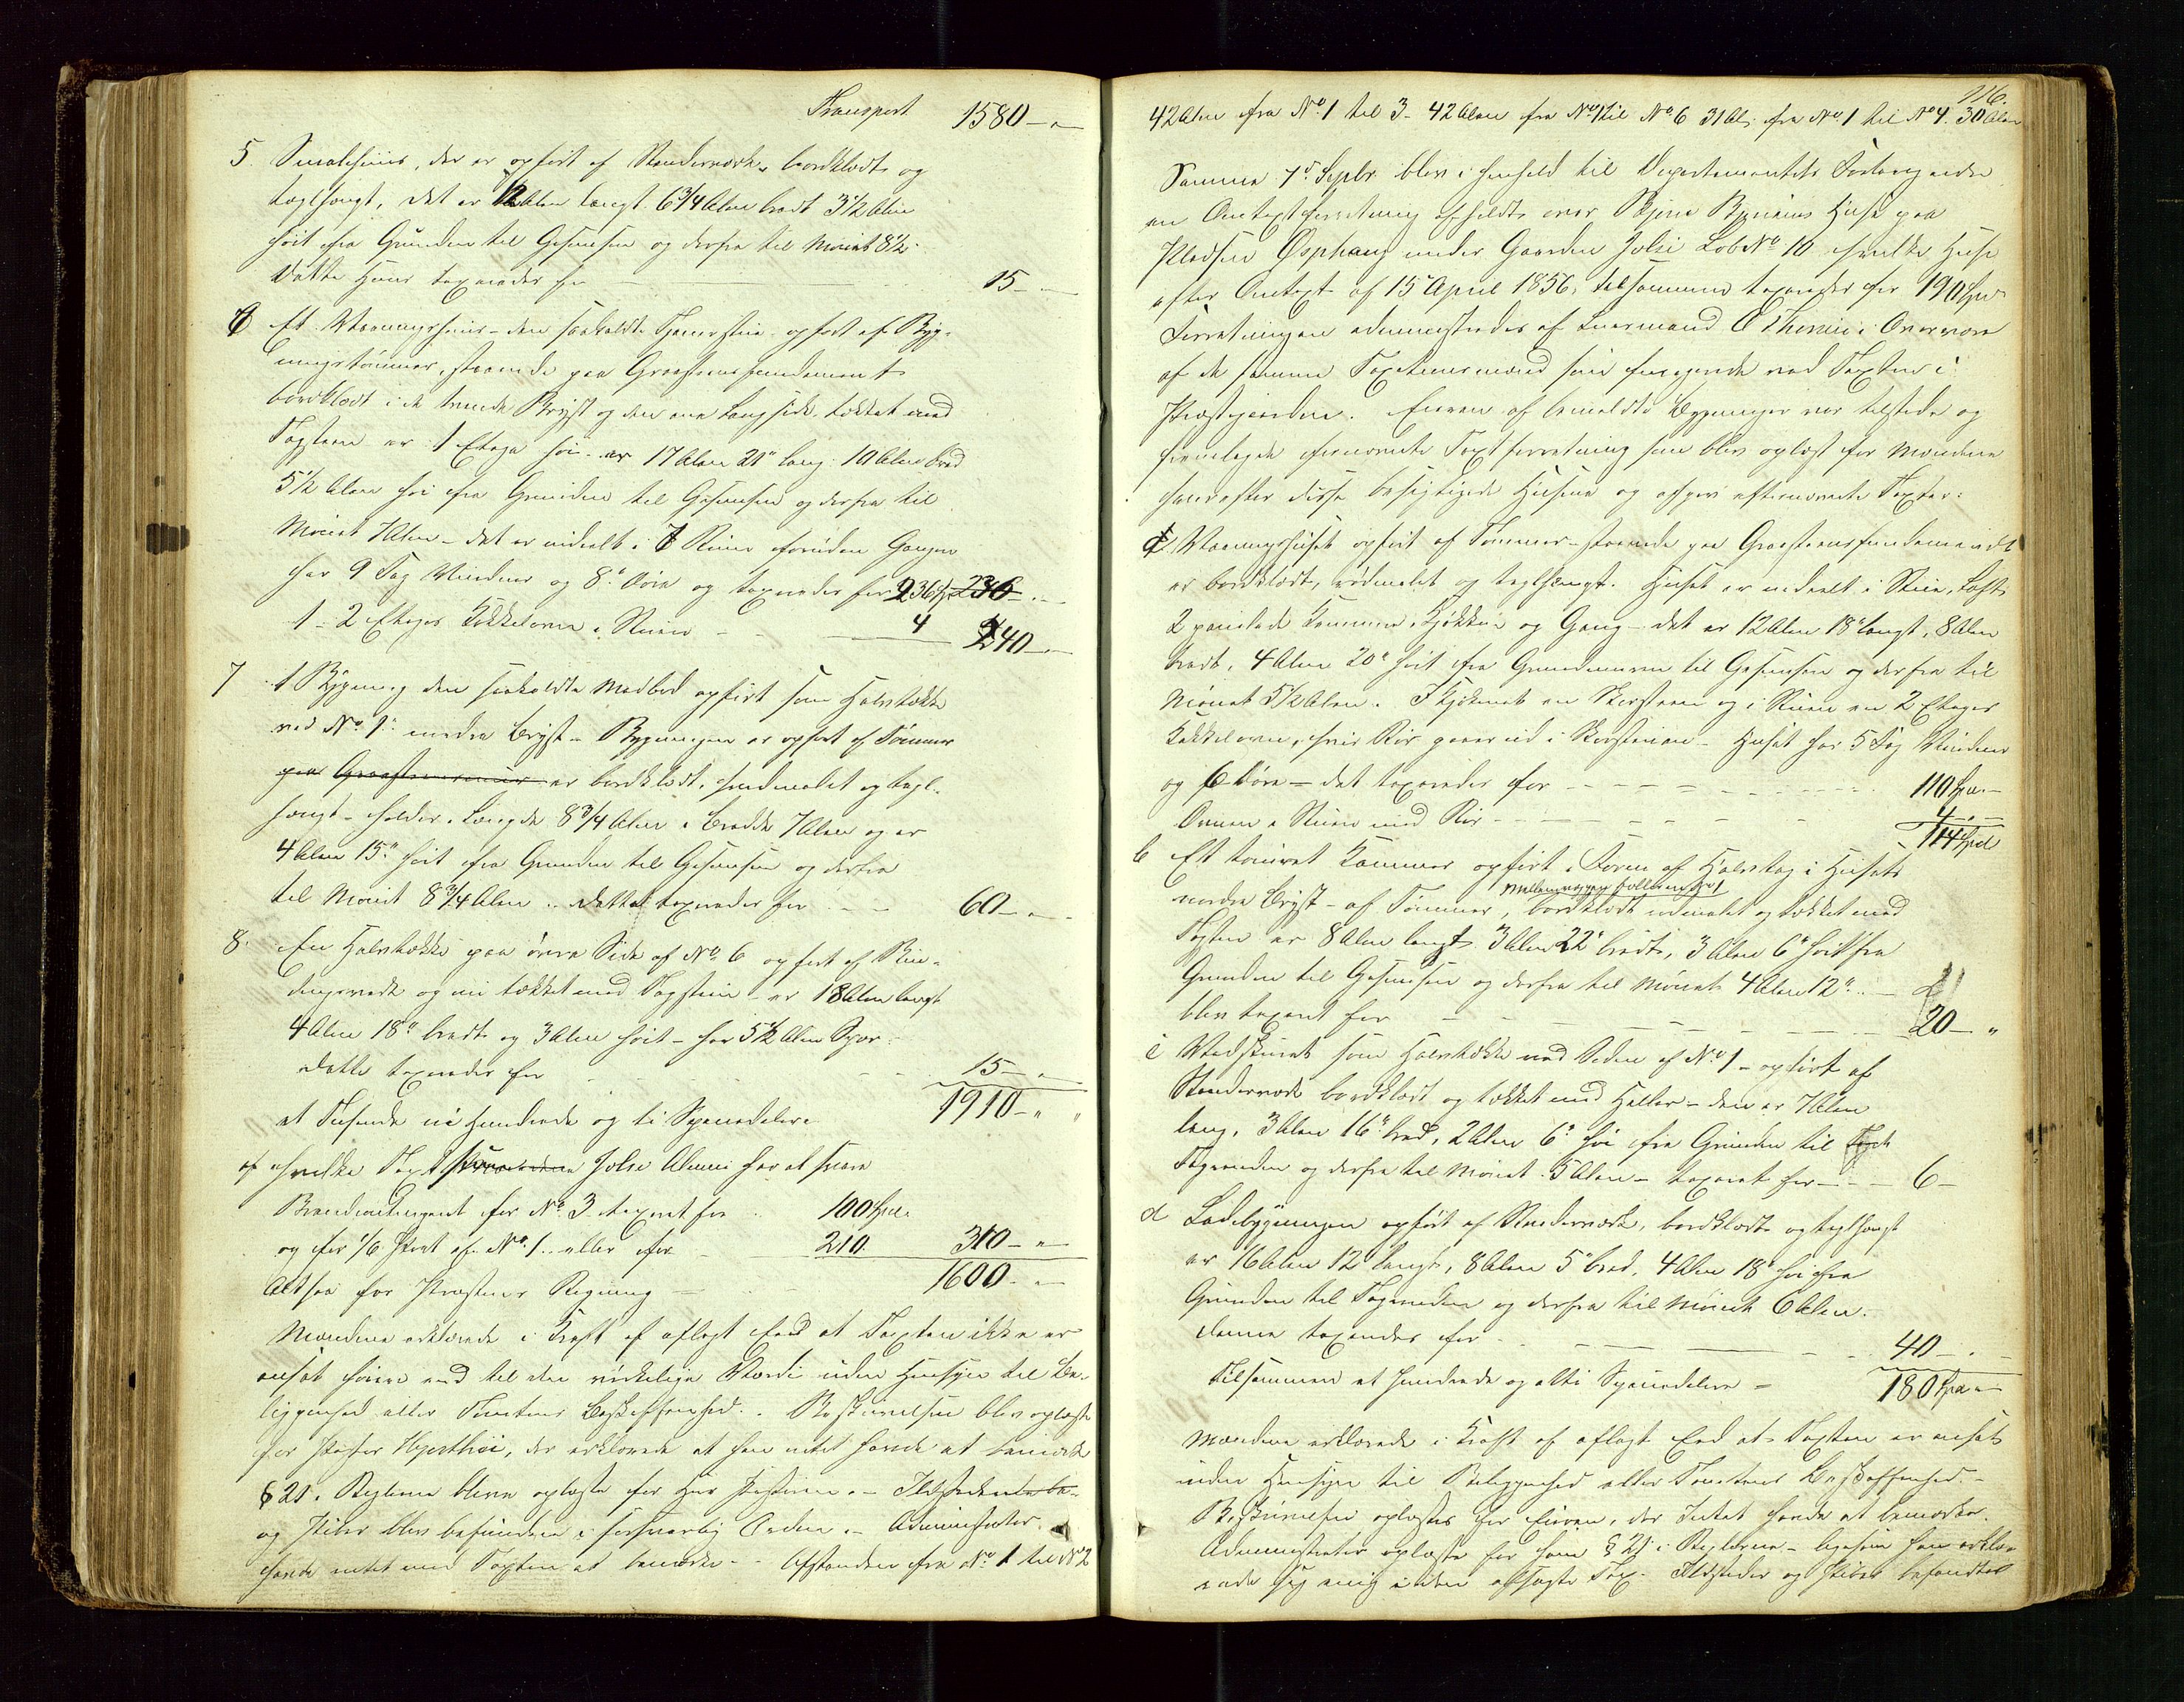 Transport 1580 — "
5. Smalehuus, der er opført af Stenderværk, bordklædt og
teglhængt, det er 12 Alen langt 6 3/4 Alen bredt 3 1/2 Alen
høit fra Grunden til Gesimsen og derfra til Mønet 8 1/2
dette Huus taxeredes for — 15 — "
6 Et Vaaningshuus — den saakaldte — opført af Byg-
ningstømmer, staaende paa Graasteensfundament
bordklædt i de tvende Bryst og den ene Langside tækket med
Tagsteen er 1 Etage høi — er 17 Alen 21" lang 10 Alen bred
5 1/2 Alen høi fra Grunden til Gesimsen og derfra til
Mønet 7 Alen — det er inddelt i 7 Rum foruden Gangen
har 9 Fag Vinduer og 8 Døre og taxeredes for 236 Spd 236 — "
1 - 2 Etages Kakkelovn i Stuen — 4 240 — "
7 1 Bygning den saakaldte Madbod opført som Halvtække
ved No 1" nordre Bryst — Bygningen er opført af Tømmer
paa Graasteensmuur er bordklædt, hvidmalet og tegl-
hængt — holder i Længde 8 3/4 Alen i Bredde 7 Alen og er
4 Alen 15" høit fra Grunden til Gesimsen og derfra
til Mønet 8 3/4 Alen .. dette taxeredes for — 60 — "
8. En Halvtække paa østre Side af No 6 opført af Bin-
dingsværk og nu tækket med Tagsteen — er 18 Alen langt
4 Alen 18" bredt og 3 Alen høit — har 5 1/2 Alen Spær
dette taxeredes for — 15 — "
et Tusende ni hundrede og ti Speciedaler 1910 — " "
af hvilke Taxt Jolse Almue har at svare
Brandcontingent for No 3 taxeret for 100 Spd.
og for 1/6 Part af No 1 eller for — 210 310 — "
Altsaa for Præstens Regning — 1600 — "
Mændene erklærede i Kraft af aflagt Eed at Taxten ikke er
ansat høiere end til den virkelige Værdi uden Hensyn til Be-
liggenhed eller Tomtens Beskaffenhed. Beskrivelsen blev oplæst
for Pastor Hjorthøi, der erklærede at han intet havde at bemærke
§ 21. Reglerne bleve oplæste for Hr Pastoren. — Ildstederne be-
og Piber blev befundne i forsvarlig Orden. — Administrator
havde intet mod Taxten at bemærke. — Afstanden fra No 1 til No 2
116.
42 Alen fra No 1 til 3 - 42 Alen fra No 1 til No 6 31 Al. fra No 1 til No 4. 30 Alen
Samme 7d Septbr blev i Henhold til Departementets Forlangende
en Omtaxtforretning afholdt over Huse paa
Pladsen Osphaug under Gaarden Jolsi Løb No 10 hvilke Huse
efter Omtaxt af 15 April 1856. tilsammen taxeredes for 190 Spd
Forretningen administreredes af Lensmand O Thonin i Overvær
af de samme Taxationsmænd som fungerede ved Taxten i
Præstegaarden. Eieren af bemeldte Bygninger var tilstede og
fremlagde fornævnte Taxtforretning som blev oplæst for Mændene
hvorefter disse besigtigede Husene og afgav efternævnte Taxter:
a Vaaningshuset opført af Tømmer — staaende paa Graasteensfundamendt
er bordklædt, rødmalet og teglhængt. Huset er inddelt i Stue, Loft
2 panelede Kammere, Kjøkken og Gang — det er 12 Alen 18" langt, 8 Alen
bredt, 4 Alen 20" høit fra Grundmuren til Gesimsen og derfra til
Mønet 5 1/2 Alen. I Kjøkkenet en Skorsteen og i Stuen en 2 Etages
Kakkelovn, hvis Rør gaar ud i Skorstenen — Huset har 5 Fag Vinduer
og 6 Døre — det taxeredes for — 110 Spd —
Ovnen i Stuen med Rør — 4 "
114 Spd
b Et tømret Kammer opført i Form af Halvtag i Husets
mellemvæggen fælles med No 1
nordre Bryst — af Tømmer, bordklædt rødmalet og tækket med
Tagsten er 8 Alen langt 3 Alen 22" bredt, 3 Alen 6" høit fra
Grunden til Gesimsen og derfra til Mønet 4 Alen 12" —
blev taxeret for — 20 — "
c Vedskuret som Halvtække ved Siden af No 1 — opført af
Stenderværk bordklædt og tækket med Heller — den er 7 Alen
lang, 3 Alen 16" bred, 2 Alen 6" høi fra Grunden til
Tagranden og derfra til Mønet 5 Alen — taxeret for — 6 —
d Ladebygningen opført af Stenderværk, bordklædt og teglhængt
er 16 Alen 12" langt, 8 Alen 5" bred, 4 Alen 18" høi fra
Grunden til Tagranden og derfra til Mønet 6 Alen.
denne taxeredes for — 40 — "
Tilsammen et hundrede og otti Speciedaler — 180 Spd "
Mændene erklærede i Kraft af aflagt Eed at Taxten er ansat
uden Hensyn til Beliggenhed eller Tomtens Beskaffenhed. —
Beskrivelsen oplæstes for Eieren, der Intet havde at bemærke.
Administrator oplæste for ham § 21 i Reglerne — ligesom han erklæ-
rede sig enig i den afsagte Tax. Ildsteder og Piber befandtes